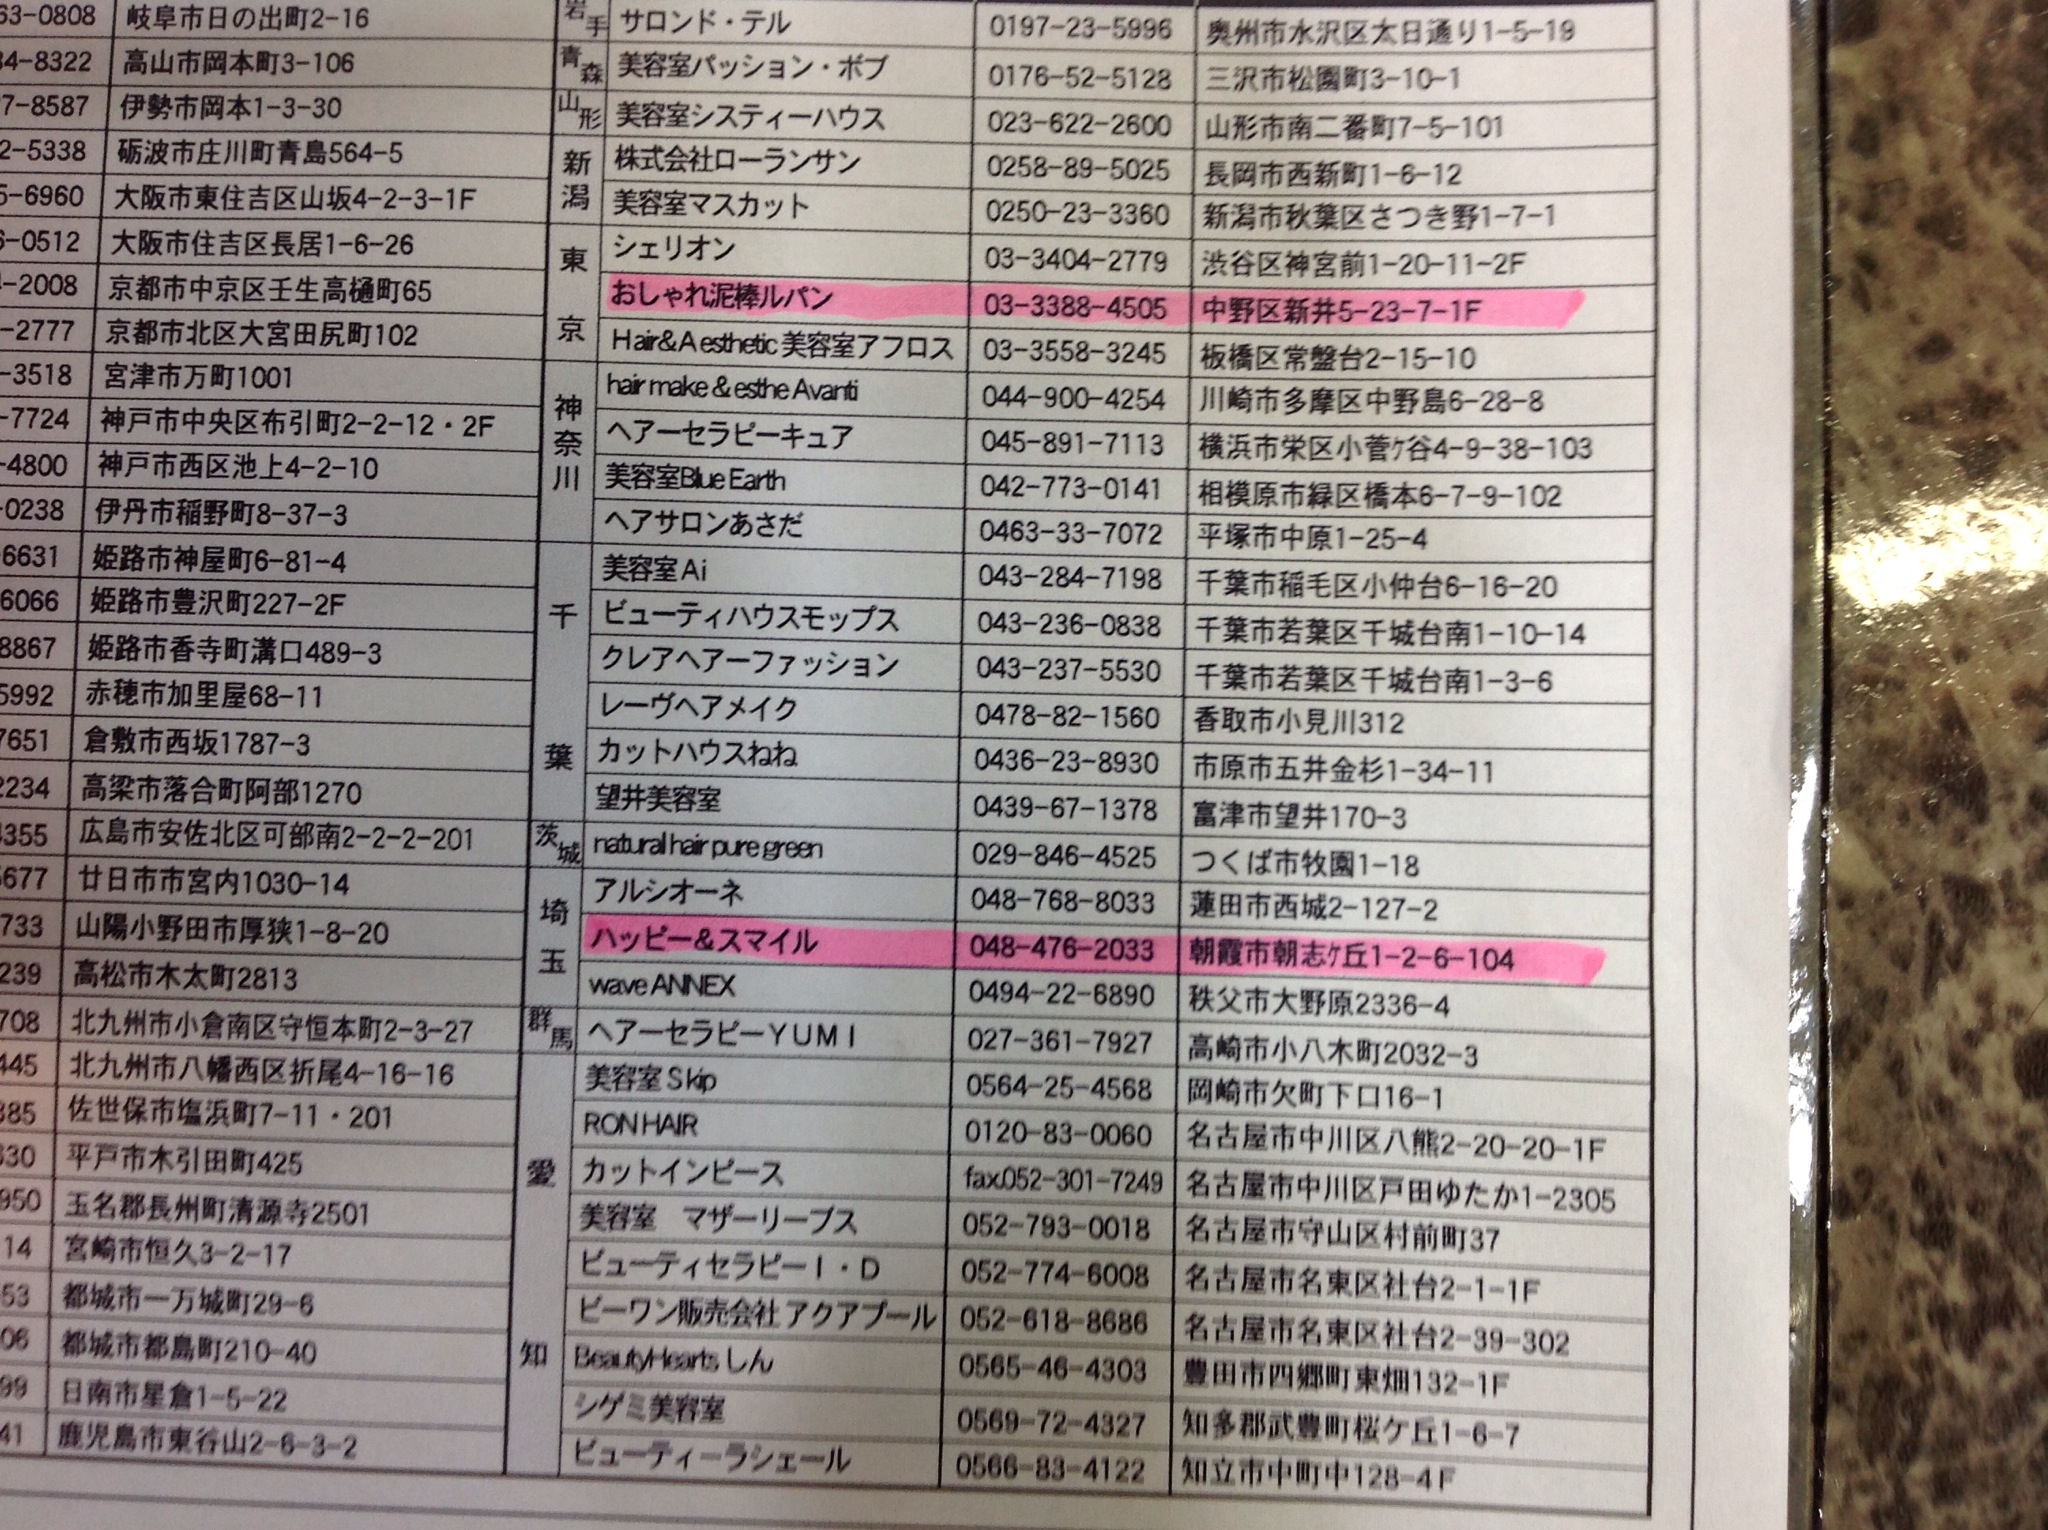 63-0808 岐阜市日の出町2-16
34-8322 高山市岡本町3-106
7-8587 伊勢市岡本1-3-30
2-5338 砺波市庄川町青島564-5
5-6960 大阪市東住吉区山坂4-2-3-1F
6-0512 大阪市住吉区長居1-6-26
-2008 京都市中京区壬生高樋町65
-2777 京都市北区大宮田尻町102
-3518 宮津市万町1001
-7724 神戸市中央区布引町2-2-12・2F
-4800 神戸市西区池上4-2-10
-0238 伊丹市稲野町8-37-3
6631 姫路市神屋町6-81-4
6066 姫路市豊沢町227-2F
8867 姫路市香寺町溝口489-3
5992 赤穂市加里屋68-11
7651 倉敷市西坂1787-3
2234 高梁市落合町阿部1270
355 広島市安佐北区可部南2-2-2-201
677 廿日市市宮内1030-14
733 山陽小野田市厚狭1-8-20
239 高松市木太町2813
708 北九州市小倉南区守恒本町2-3-27
445 北九州市八幡西区折尾4-16-16
385 佐世保市塩浜町7-11・201
330 平戸市木引田町425
950 玉名郡長州町清源寺2501
14 宮崎市恒久3-2-17
53 都城市一万城町29-6
06 都城市都島町210-40
99 日南市星倉1-5-22
41 鹿児島市東谷山2-6-3-2
岩手 サロンド・テル 0197-23-5996 奥州市水沢区太日通り1-5-19
青森 美容室パッション・ボブ 0176-52-5128 三沢市松園町3-10-1
山形 美容室システィーハウス 023-622-2600 山形市南二番町7-5-101
新潟 株式会社ローランサン 0258-89-5025 長岡市西新町1-6-12
美容室マスカット 0250-23-3360 新潟市秋葉区さつき野1-7-1
東京 シェリオン 03-3404-2779 渋谷区神宮前1-20-11-2F
おしゃれ泥棒ルパン 03-3388-4505 中野区新井5-23-7-1F
Hair&Aesthetic 美容室アフロス 03-3558-3245 板橋区常盤台2-15-10
神奈川 hair make & esthe Avanti 044-900-4254 川崎市多摩区中野島6-28-8
ヘアーセラピーキュア 045-891-7113 横浜市栄区小菅ケ谷4-9-38-103
美容室Blue Earth 042-773-0141 相模原市緑区橋本6-7-9-102
ヘアサロンあさだ 0463-33-7072 平塚市中原1-25-4
千葉 美容室Ai 043-284-7198 千葉市稲毛区小仲台6-16-20
ビューティハウスモップス 043-236-0838 千葉市若葉区千城台南1-10-14
クレアヘアーファッション 043-237-5530 千葉市若葉区千城台南1-3-6
レーヴヘアメイク 0478-82-1560 香取市小見川312
カットハウスねね 0436-23-8930 市原市五井金杉1-34-11
望井美容室 0439-67-1378 富津市望井170-3
茨城 natural hair pure green 029-846-4525 つくば市牧園1-18
埼玉 アルシオーネ 048-768-8033 蓮田市西城2-127-2
ハッピー&スマイル 048-476-2033 朝霞市朝志ケ丘1-2-6-104
wave ANNEX 0494-22-6890 秩父市大野原2336-4
群馬 ヘアーセラピーYUMI 027-361-7927 高崎市小八木町2032-3
愛知 美容室 Skip 0564-25-4568 岡崎市欠町下口16-1
RON HAIR 0120-83-0060 名古屋市中川区八熊2-20-20-1F
カットインピース fax.052-301-7249 名古屋市中川区戸田ゆたか1-2305
美容室 マザーリーブス 052-793-0018 名古屋市守山区村前町37
ビューティセラピーI・D 052-774-6008 名古屋市名東区社台2-1-1F
ビーワン販売会社 アクアプール 052-618-8686 名古屋市名東区社台2-39-302
BeautyHearts しん 0565-46-4303 豊田市四郷町東畑132-1F
シゲミ美容室 0569-72-4327 知多郡武豊町桜ケ丘1-6-7
ビューティーラシェール 0566-83-4122 知立市中町中128-4F